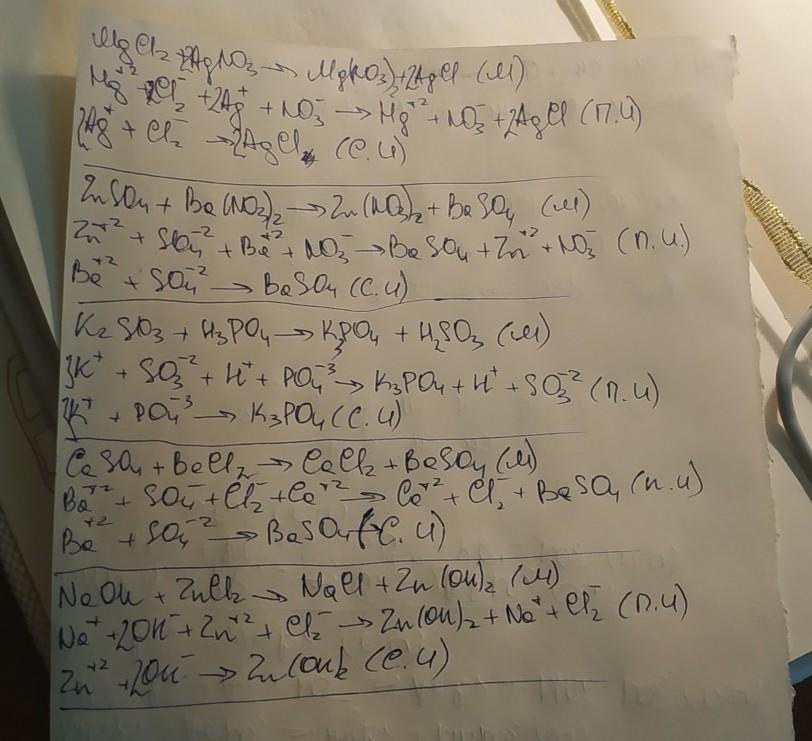 MgCl₂ + 2AgNO₃ → Mg(NO₃)₂ + 2AgCl (М)
Mg⁺² + 2Cl₂⁻ + 2Ag⁺ + NO₃⁻ → Mg⁺² + NO₃⁻ + 2AgCl (П.И)
2Ag⁺ + Cl₂⁻ → 2AgCl (С.И)
ZnSO₄ + Ba(NO₃)₂ → Zn(NO₃)₂ + BaSO₄ (М)
Zn⁺² + SO₄⁻² + Ba⁺² + NO₃⁻ → BaSO₄ + Zn⁺² + NO₃⁻ (П.И.)
Ba⁺² + SO₄⁻² → BaSO₄ (С.И)
K₂SO₃ + H₃PO₄ → K₃PO₄ + H₂SO₃ (М)
3K⁺ + SO₃⁻² + H⁺ + PO₄⁻³ → K₃PO₄ + H⁺ + SO₃⁻² (П.И)
3K⁺ + PO₄⁻³ → K₃PO₄ (С.И)
CaSO₄ + BaCl₂ → CaCl₂ + BaSO₄ (М)
Ba⁺² + SO₄⁻ + Cl₂⁻ + Ca⁺² → Ca⁺² + Cl₂⁻ + BaSO₄ (П.И)
Ba⁺² + SO₄⁻² → BaSO₄ (С.И)
NaOH + ZnCl₂ → NaCl + Zn(OH)₂ (М)
Na⁺ + 2OH⁻ + Zn⁺² + Cl₂⁻ → Zn(OH)₂ + Na⁺ + Cl₂⁻ (П.И)
Zn⁺² + 2OH⁻ → Zn(OH)₂ (С.И)